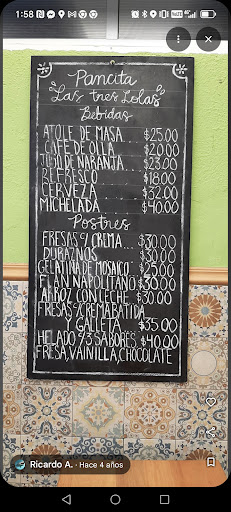 1:58
74%
Pancita
"Las tres Lolas"
Bebidas
ATOLE DE MASA $25.00
CAFE DE OLLA $20.00
JUGO DE NARANJA $23.00
REFRESCO $18.00
CERVEZA $32.00
MICHELADA $40.00
Postres
FRESAS Y CREMA... $30.00
DURAZNOS $30.00
GELATINA DE MOSAICO $25.00
FLAN NAPOLITANO $30.00
ARROZ CON LECHE $30.00
FRESAS Y REMABATIDA
Y GALLETA $35.00
HELADO 3 SABORES $40.00
FRESA, VAINILLA, CHOCOLATE
Ricardo A. · Hace 4 años